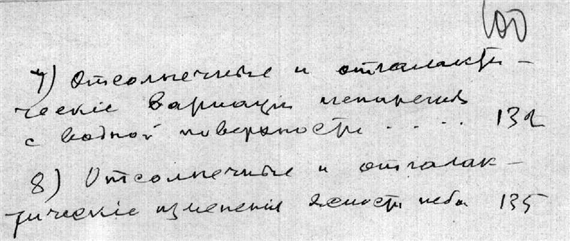 100
7) Отсолнечные и отгалакти-
ческіе варіаціи испаренія
с водной поверхности . . . . 132
8) Отсолнечные и отгалак-
тическіе измененія ясности неба 135